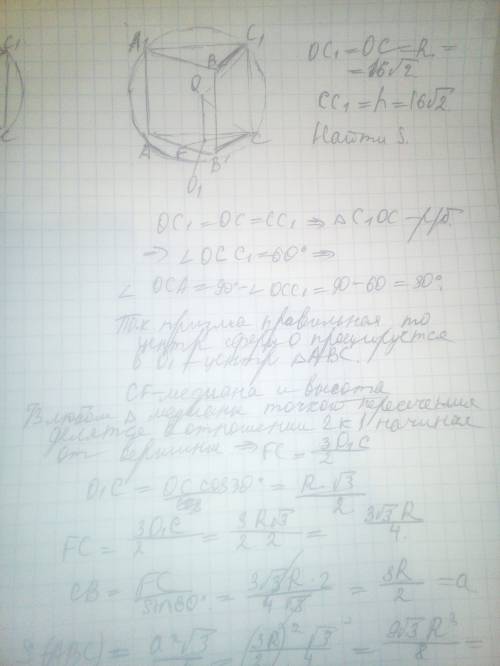 C₁
C
A₁
C₁
B
O
A
F
B'
C
O₁
OC₁ = OC = R =
= 16√2
CC₁ = h = 16√2
Найти S.
OC₁ = OC = CC₁ ⇒ △C₁OC – р/б.
⇒ ∠OCC₁ = 60° ⇒
∠OCA = 90° - ∠OCC₁ = 90 - 60 = 30°.
Так призма правильная, то
центр сферы O проецируется
в O₁ – центр △ABC.
CF – медиана и высота
В любом △ медианы точкой пересечения
делятся в отношении 2 к 1 начиная
от вершины ⇒ FC = 3O₁C/2
O₁C = OC cos30° = R·√3/2
FC = 3O₁C/2 = 3R√3/2·2 = 3√3R/4.
CB = FC/sin60° = 3√3R·2/4√3 = 3R/2 = a
S(ABC) = a²√3/4 = (3R/2)²√3/4 = 9√3R²/8 =